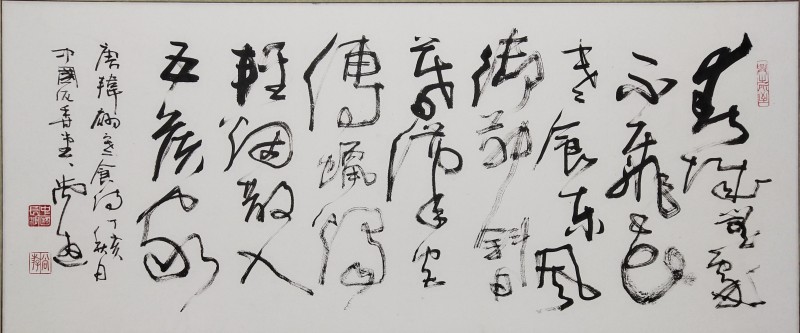 春城無處
不飛花
寒食東風
御柳斜日
暮漢宮
傳蠟燭
輕烟散入
五侯家
唐韓翃寒食詩丁亥秋月
中國